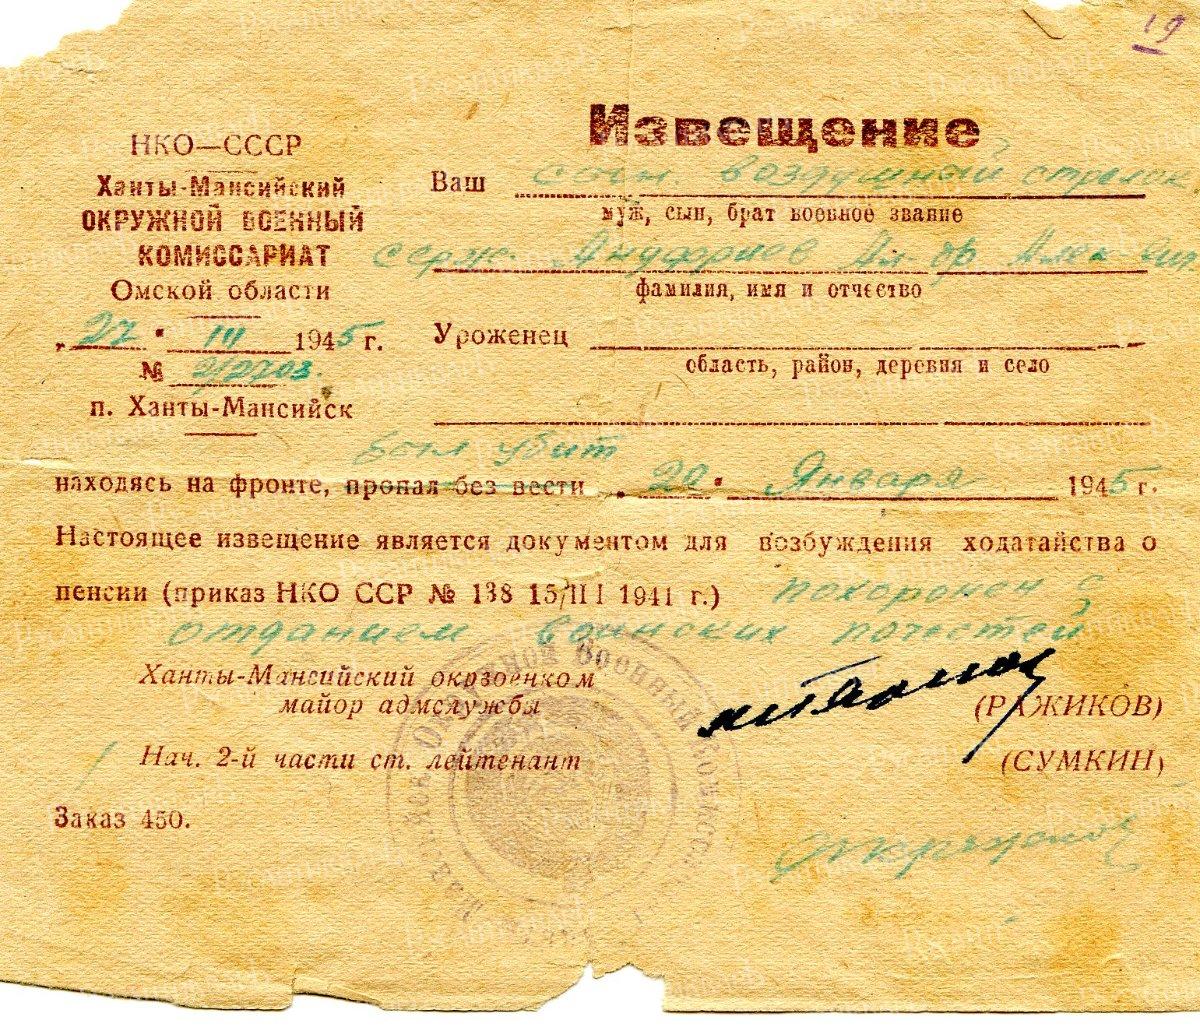 19
НКО—СССР
Ханты-Мансийский
ОКРУЖНОЙ ВОЕННЫЙ
КОМИССАРИАТ
Омской области
„ 27 " III 1945 г.
№
п. Ханты-Мансийск
Извещение
Ваш сын воздушный стрелок
муж, сын, брат военное звание
серж. Ануфриев Ал-др Алек
фамилия, имя и отчество
Уроженец
область, район, деревня и село
был убит
находясь на фронте, пропал без вести „ 20 " Января 1945 г.
Настоящее извещение является документом для возбуждения ходатайства о
пенсии (приказ НКО ССР № 138 15/III 1941 г.) похоронен с
отданием воинских почестей
Ханты-Мансийский окрвоенком
майор адмслужбы (РАЖИКОВ)
Нач. 2-й части ст. лейтенант (СУМКИН)
Заказ 450.